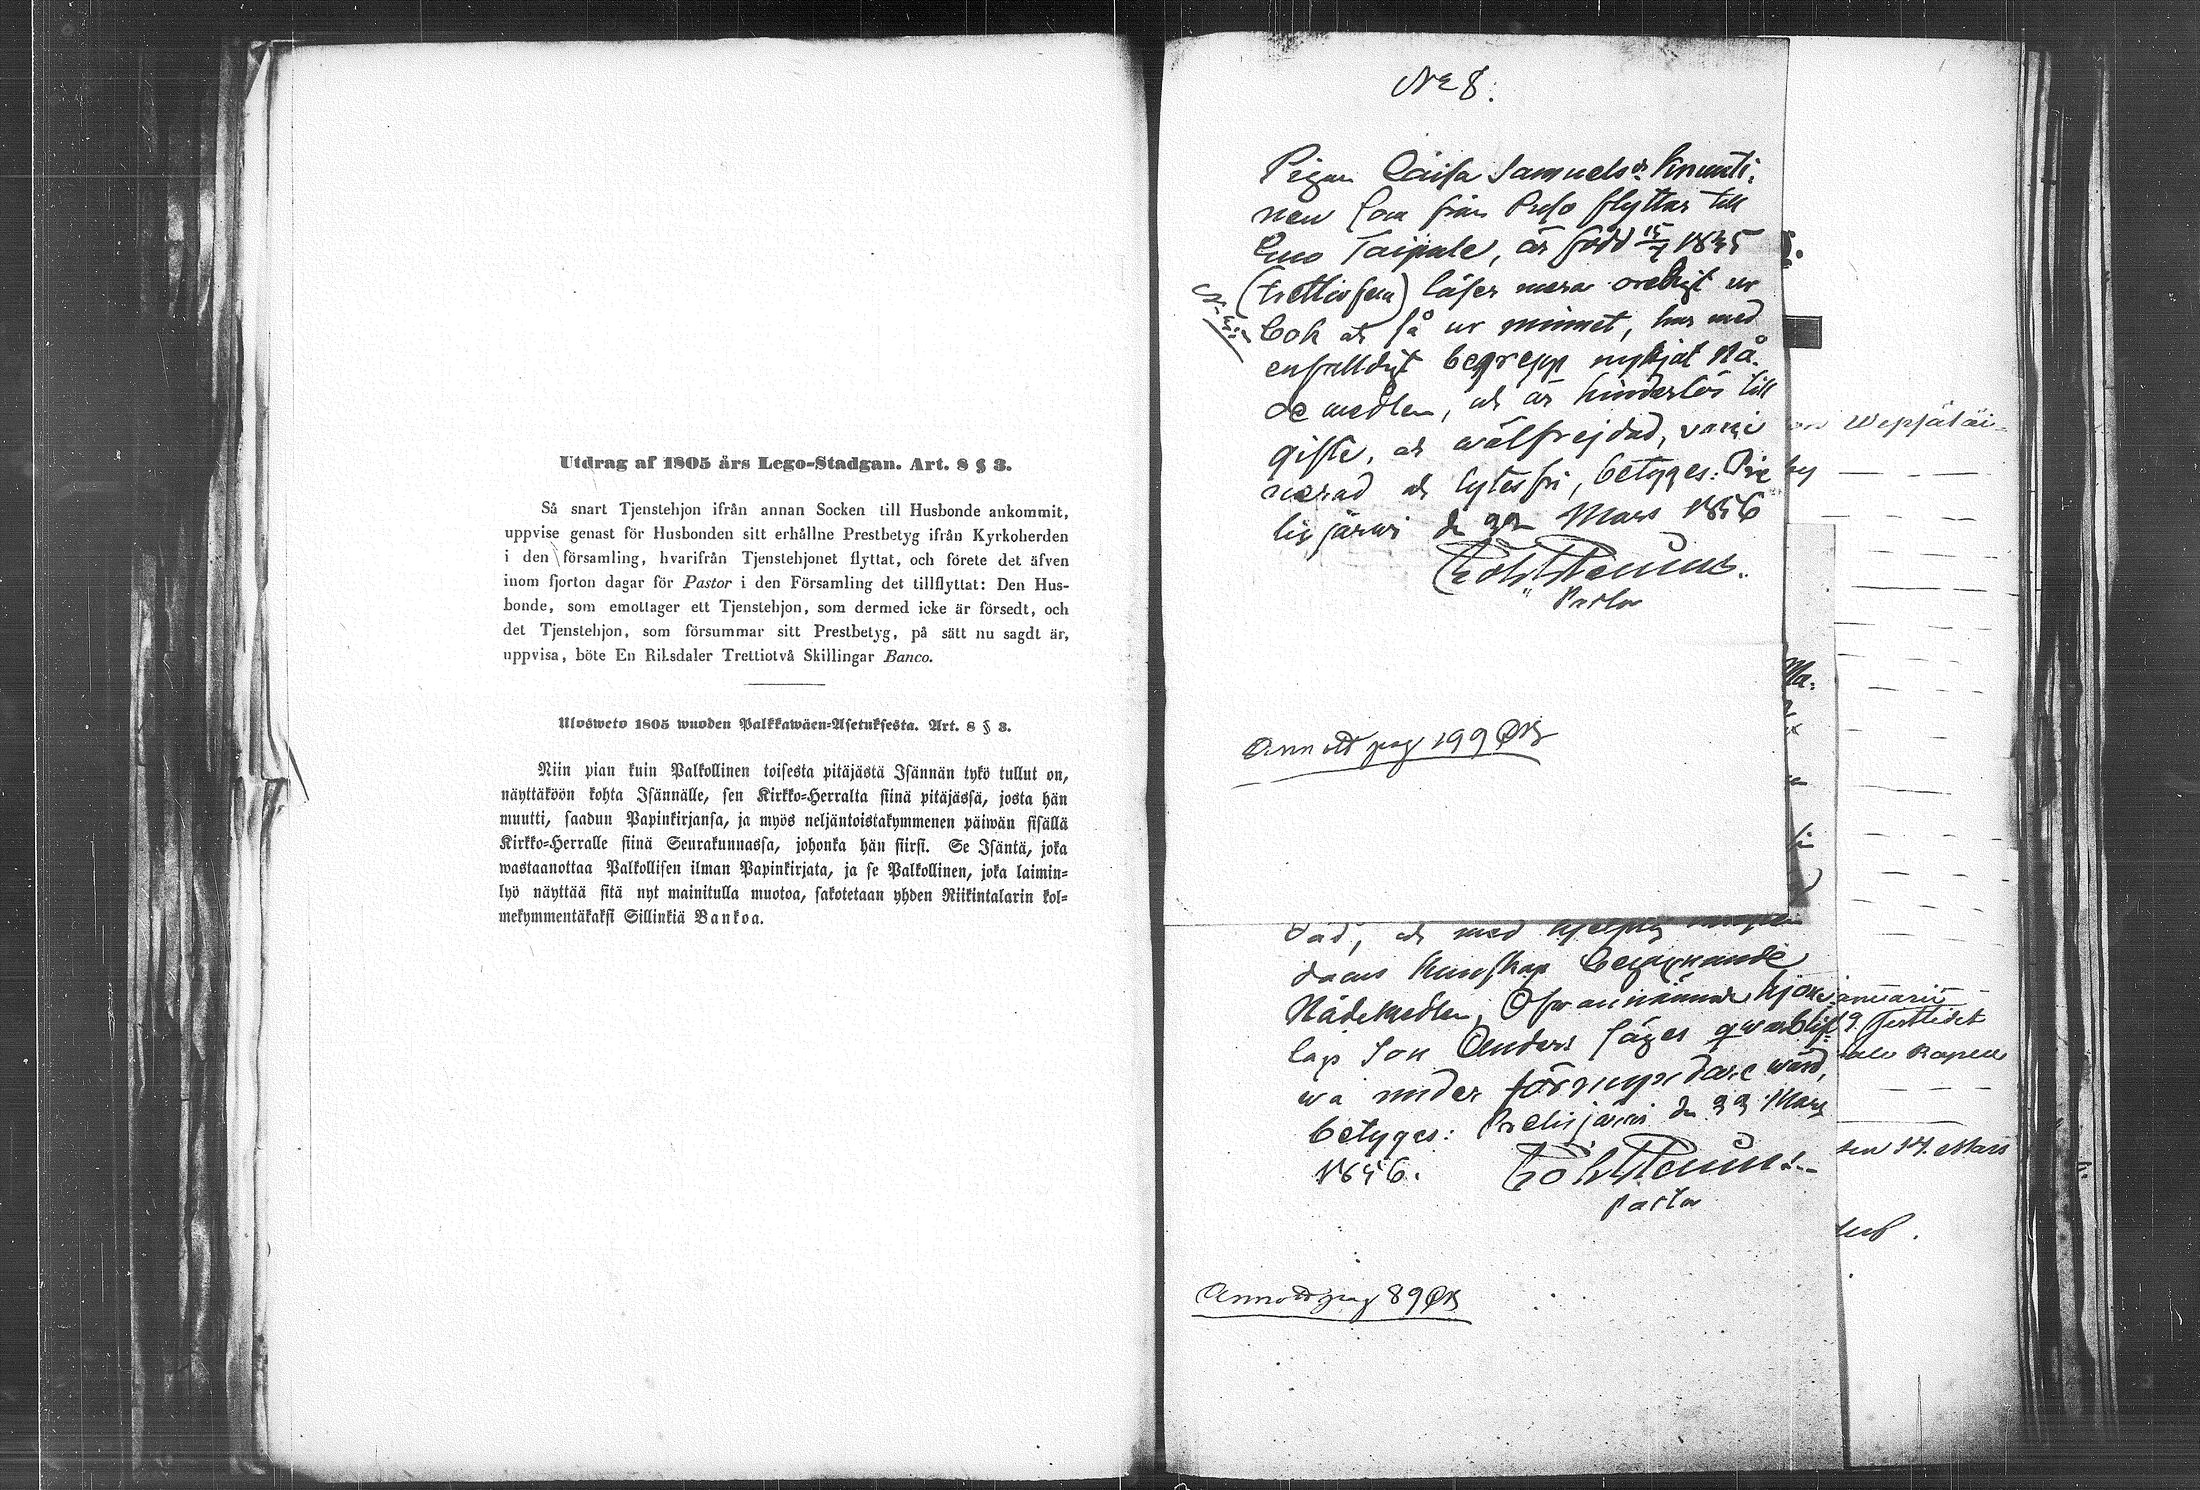 Utdrag af 1805 års Lego-Stadgan. Art. 8 § 3.
Så snart Tjenstehjon ifrån annan Socken till Husbonde ankommit,
uppvise genast för Husbonden sitt erhållne Prestbetyg ifrån Kyrkoherden
i den församling, hvarifrån Tjenstehjonet flyttat, och förete det äfven
inom fjorton dagar för Pastor i den Församling det tillflyttat: Den Hus-
bonde, som emottager ett Tjenstehjon, som dermed icke är försedt, och
det Tjenstehjon, som försummar sitt Prestbetyg, på sätt nu sagdt är,
uppvisa, böte En Riksdaler Trettiotvå Skillingar Banco.
Ulosweto 1805 wuoden Palkkawäen-Asetuksesta. Art. 8 § 3.
Niin pian kuin Palkollinen toisesta pitäjästä Isännän tykö tullut on,
näyttäköön kohta Isännälle, sen Kirkko-Herralta siinä pitäjässä, josta hän
muutti, saadun Papinkirjansa, ja myös neljäntoistakymmenen päiwän sisällä
Kirkko-Herralle siinä Seurakunnassa, johonka hän siirsi. Se Isäntä, joka
wastaanottaa Palkollisen ilman Papinkirjata, ja se Palkollinen, joka laimin-
lyö näyttää sitä nyt mainitulla muotoa, sakotetaan yhden Riikintalarin kol-
mekymmentäkaksi Sillinkiä Bankoa.
No 8.
Pigan Caisa Samuelsdr Knuuti-
nen som från flyttar till
Eno Taipale, är född 15/7 1835
(trettiofem) läser mera oredigt ur
bok och så ur minnet, har med
enfalldigt begrepp nyttjat Nå-
demedlen, och är hinderlös till
gifte, och wälfrejdad, vacci-
nerad och lytesfri, betyges: Pie-
lisjärwi den 22 Mars 1856
Pastor
Annotd pag 199
dad, och med
kunskap begagnande
Nådemedlen. Ofwannämnde
son Anders säges qwarblif-
wa under förmyndare wård,
betyges: Pielisjärwi den 22 Mars
1856.
Pastor
Annotd pag 89
januarii
Kapell
den 14 Mars